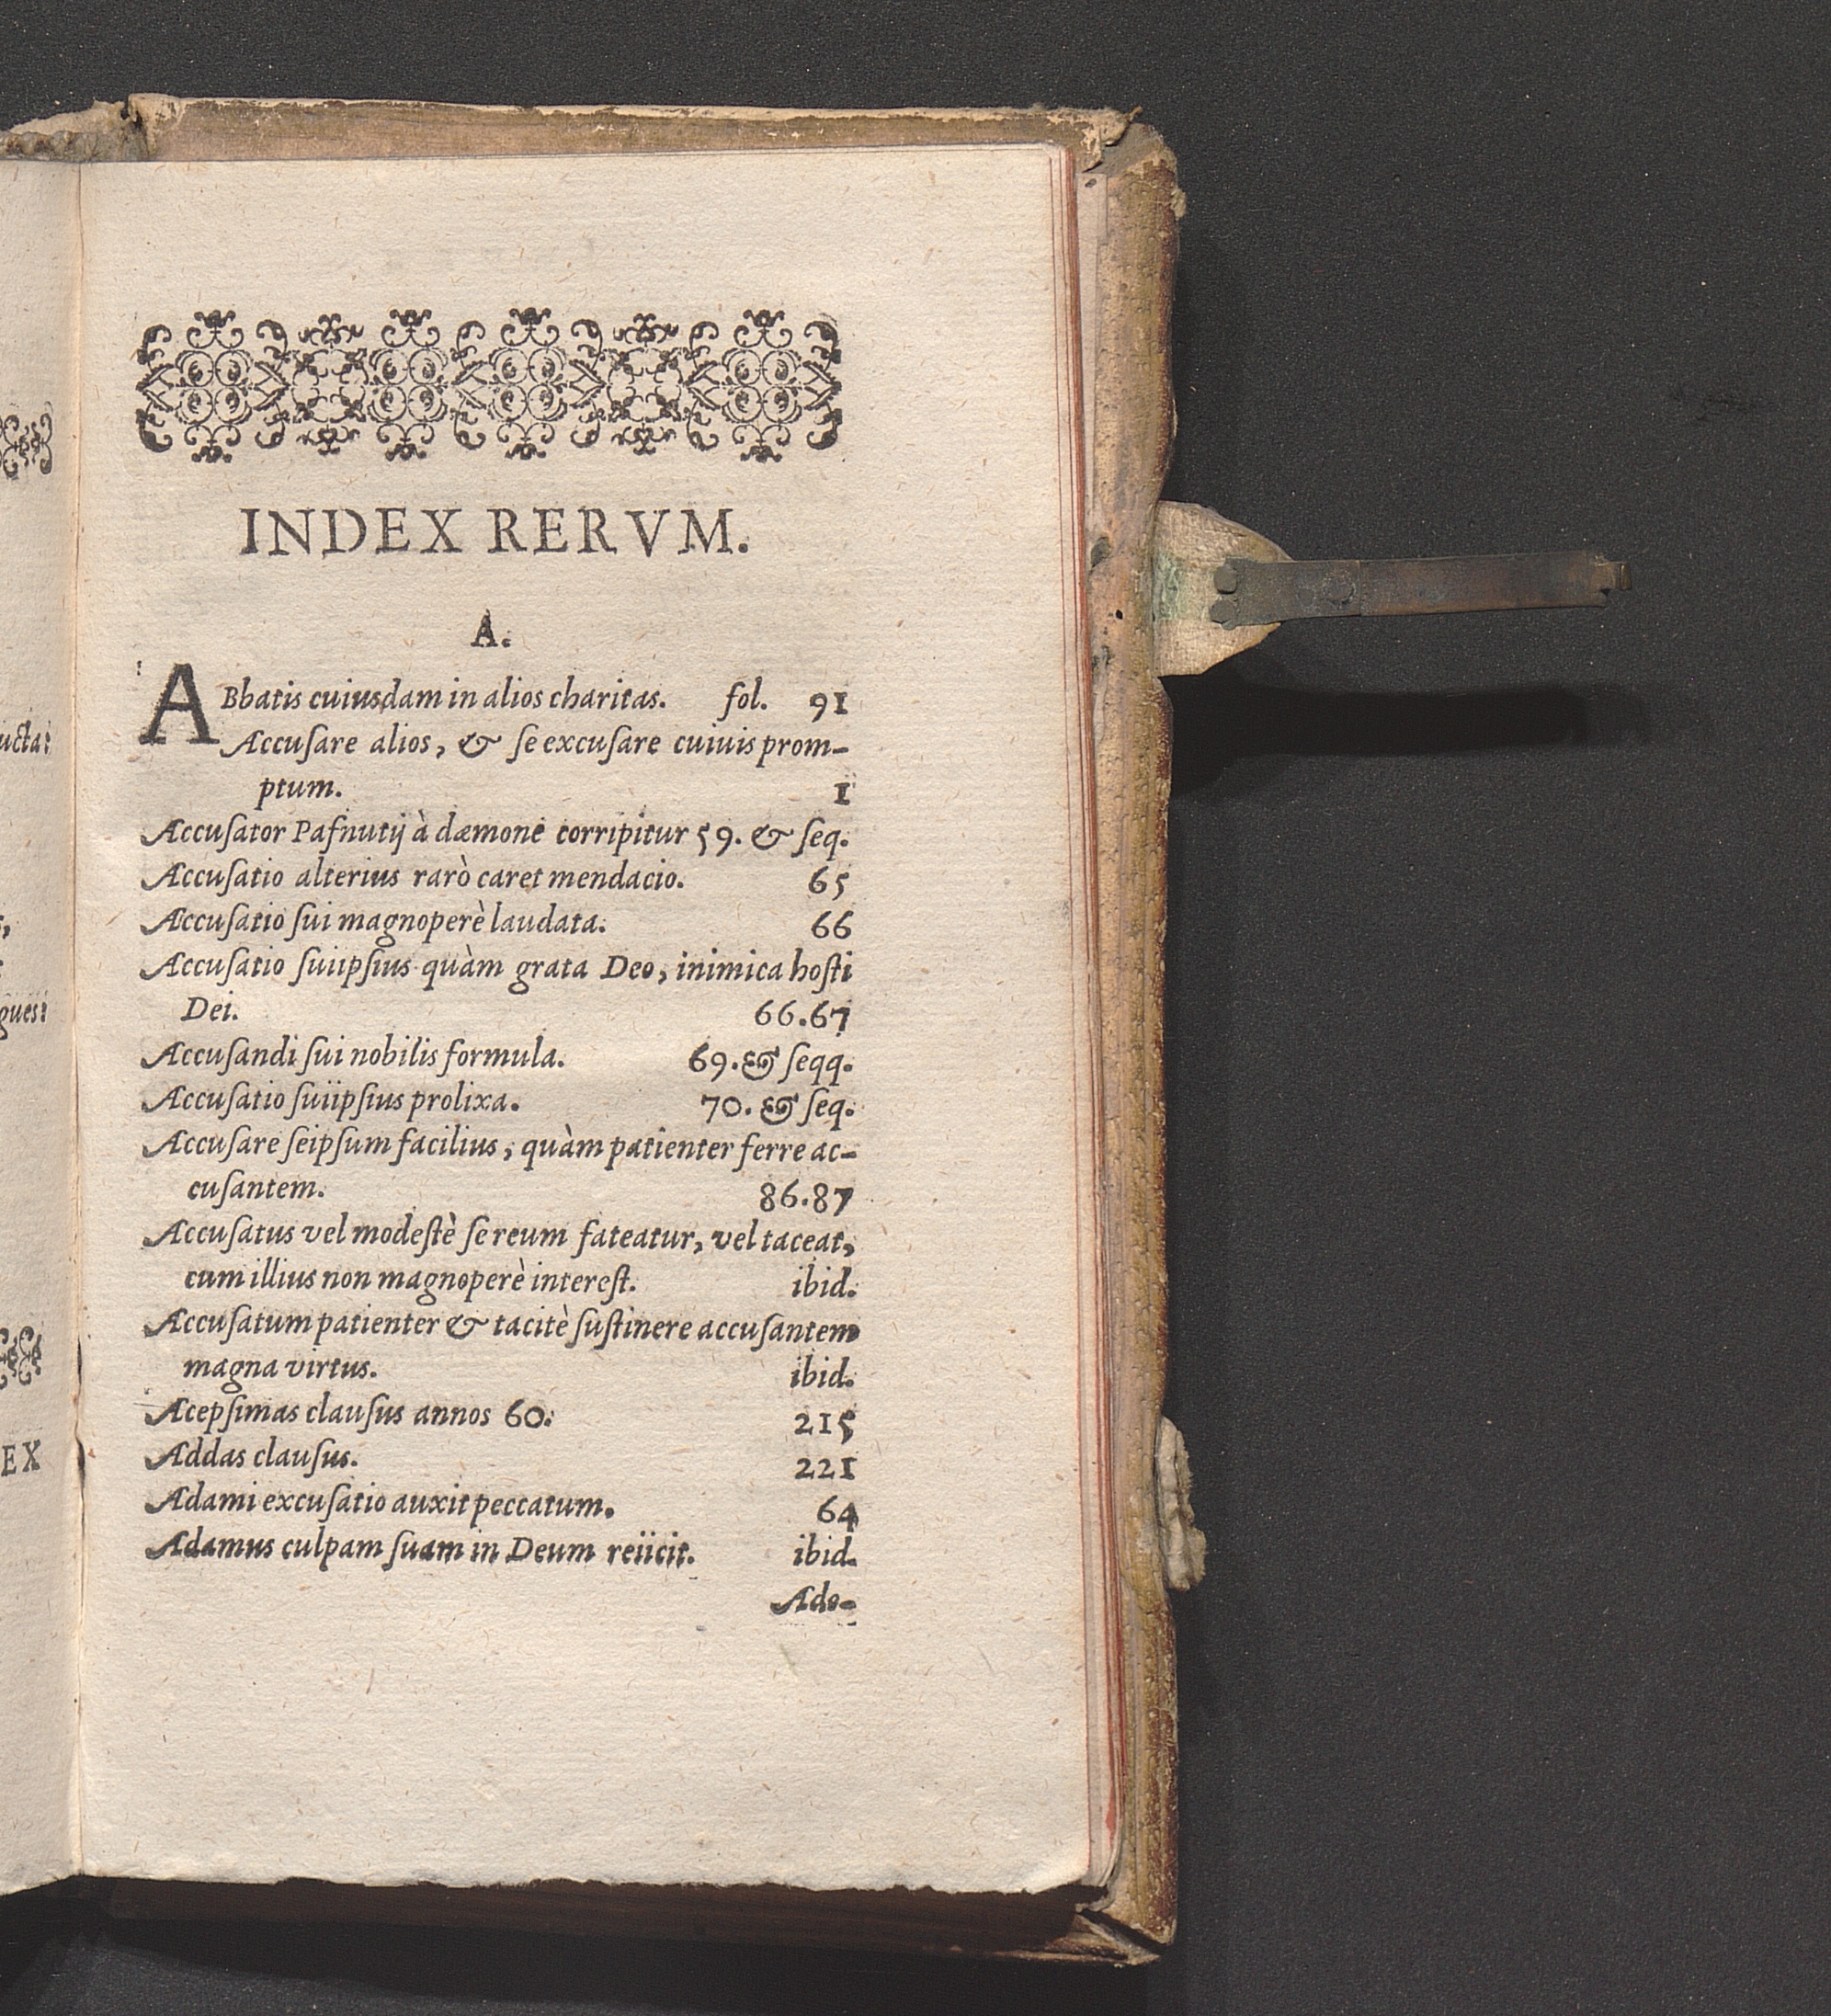 INDEX RERVM.
A.
ABbatis cuiusdam in alios charitas. fol. 91
Accuſare alios, & ſe excuſare cuiuis prom-
ptum. 1
Accuſator Pafnutij à dæmone corripitur 59. & ſeq.
Accuſatio alterius rarò caret mendacio. 65
Accuſatio ſui magnoperè laudata. 66
Accuſatio ſuiipſius quàm grata Deo, inimica hoſti
Dei. 66.67
Accuſandi ſui nobilis formula. 69. & ſeqq.
Accuſatio ſuiipſius prolixa. 70. & ſeq.
Accuſare ſeipſum facilius, quàm patienter ferre ac-
cuſantem. 86.87
Accuſatus vel modeſtè ſe reum fateatur, vel taceat,
cum illius non magnoperè intereſt. ibid.
Accuſatum patienter & tacitè ſuſtinere accuſantem
magna virtus. ibid.
Acepſimas clauſus annos 60. 215
Addas clauſus. 221
Adami excuſatio auxit peccatum. 64
Adamus culpam ſuam in Deum reiicit. ibid.
Ado-
EX